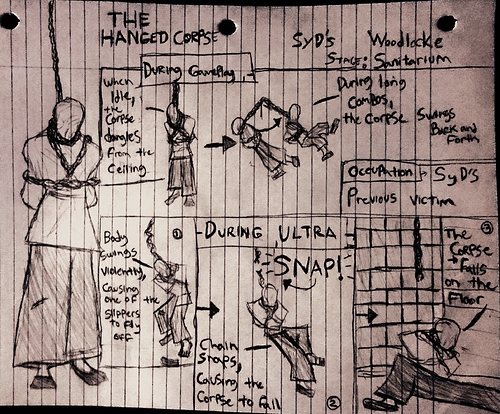 THE
HANGED CORPSE
SYD'S Woodlocke
STAGE: Sanitarium
DURING Gameplay
When
Idle,
the
Corpse
dangles
From the
Ceiling.
During long
Combos,
the Corpse Swings
Back and
Forth
Occupation → SyD's
Previous Victim
Body
Swings
Violently,
Causing
one of the
Slippers
to Fly
OFF
①
-DURING ULTRA
SNAP!
Chain
Snaps,
Causing the
Corpse to Fall
②
③
The
Corpse
Falls
on the
Floor